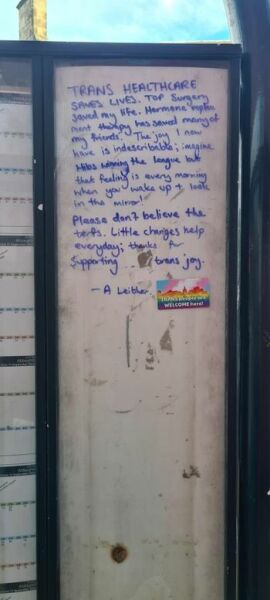 TRANS HEALTHCARE
SAVES LIVES. TOP Surgery
saved my life. Hormone replace
ment therapy has saved many of
my friends. The joy I now
have is indescribable; imagine
Hibs winning the league but
that feeling is every morning
when you wake up + look
in the mirror!
Please don't believe the
terfs. Little changes help
everyday; thanks for
supporting trans joy.
- A Leither
TRANS PEOPLE ARE
WELCOME here!